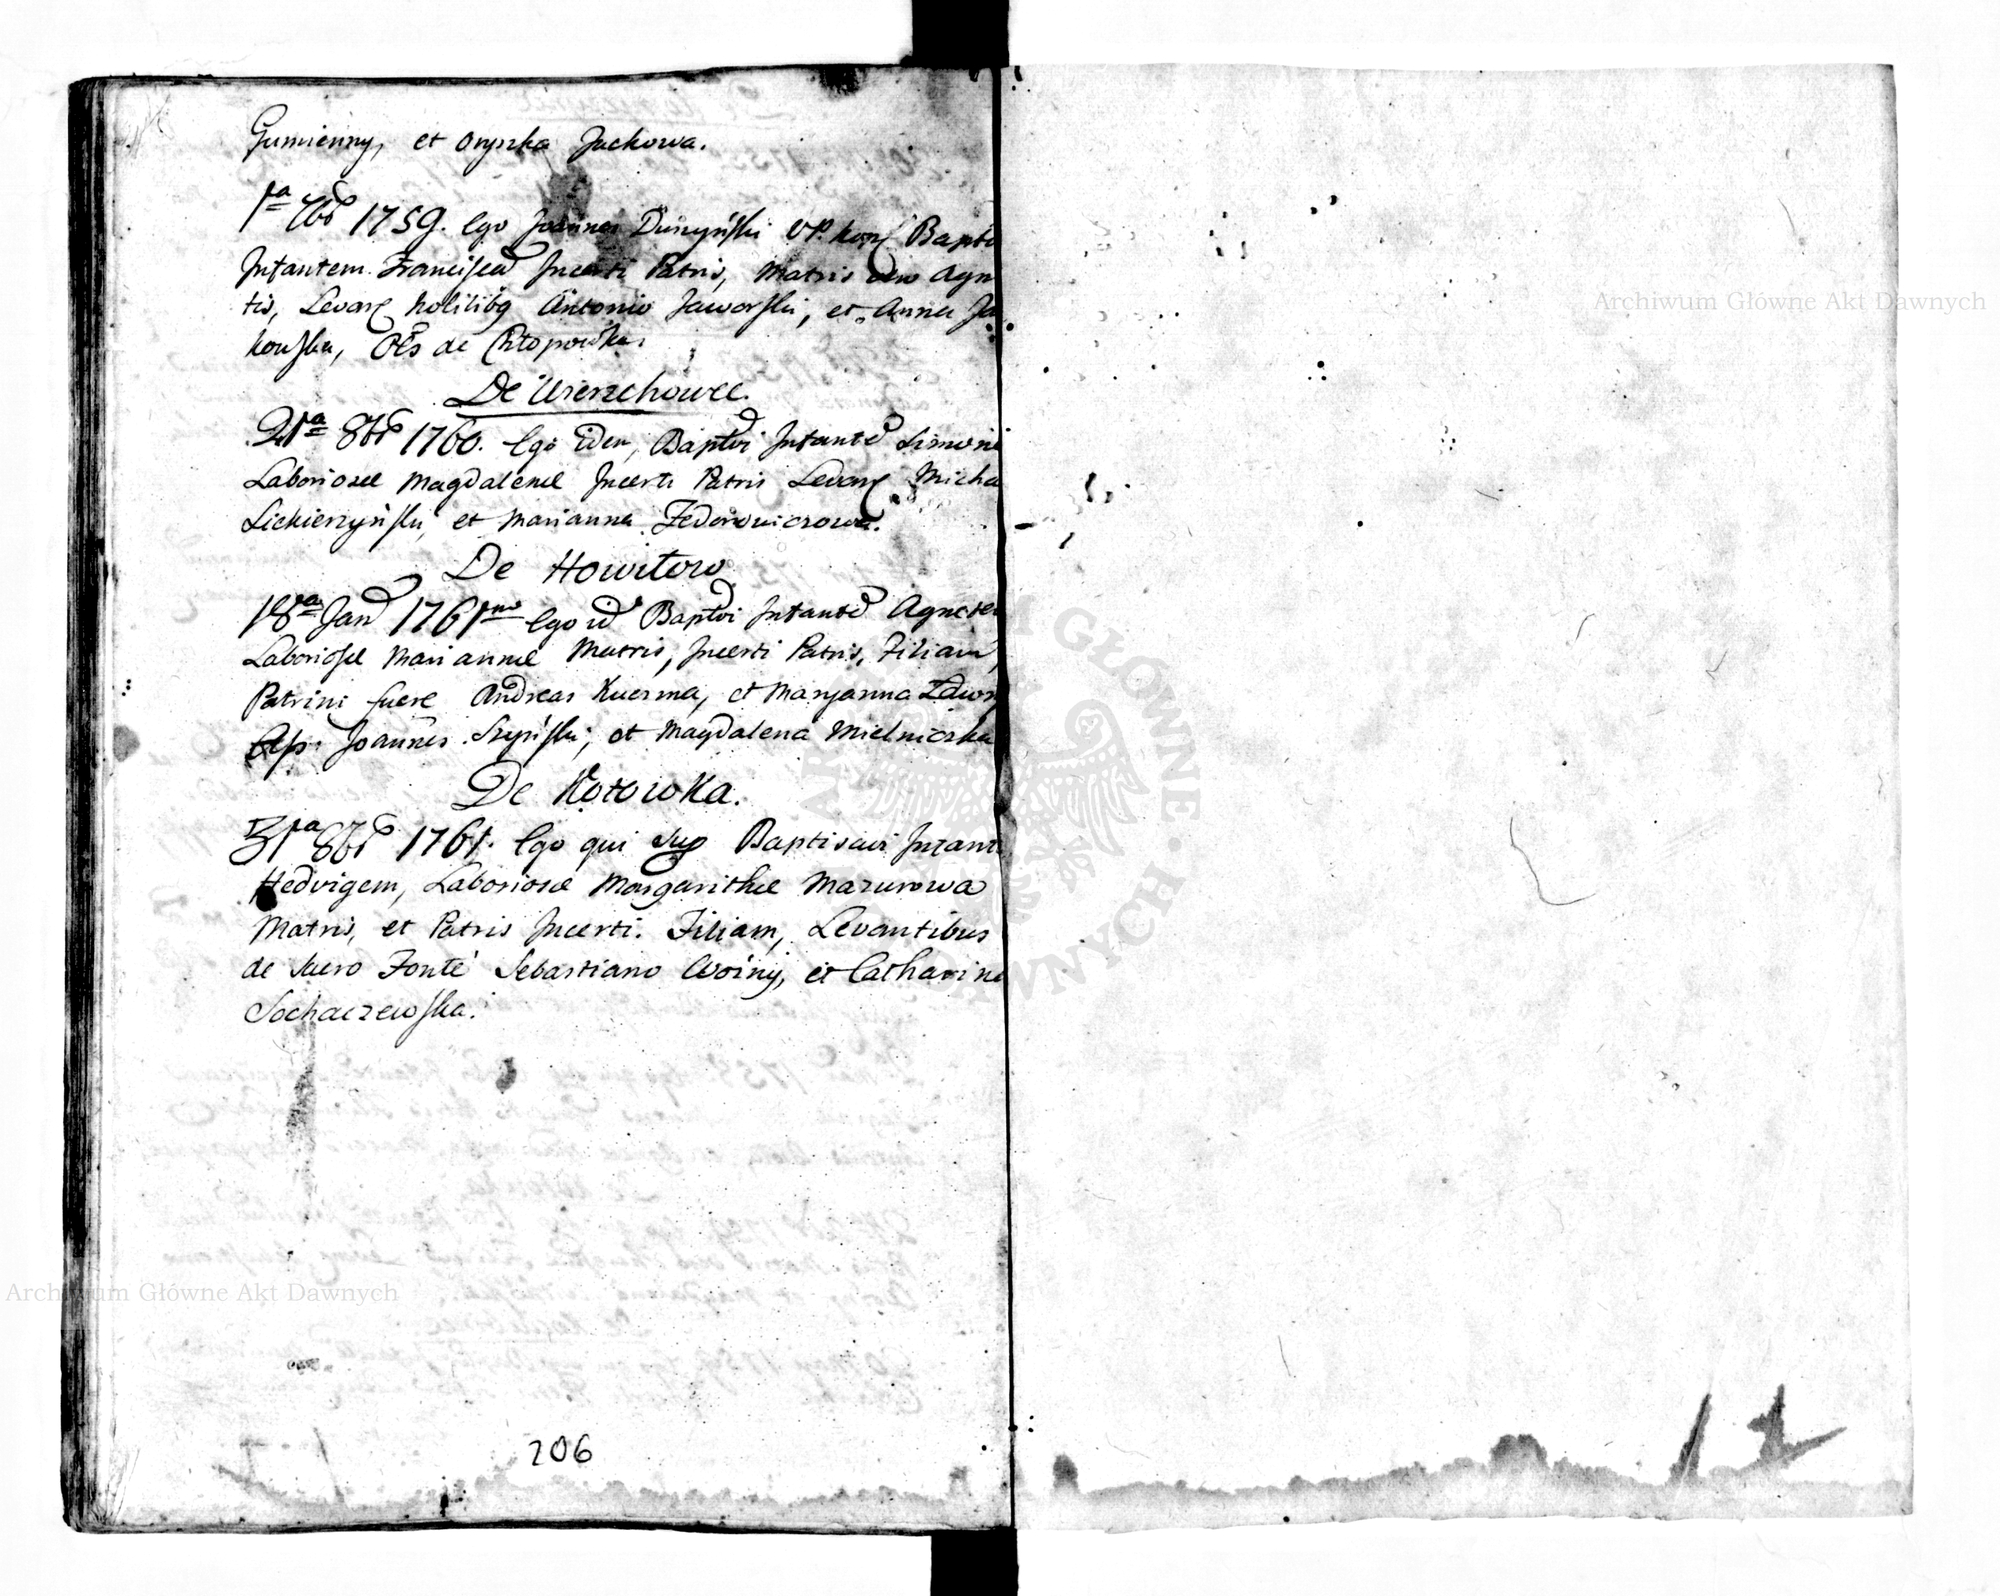 Gumienny, et Oryszka Jackowa.
1ma 7br 1759. Ego Joannes Duszyński VP. Bapt
Infantem Francisca Incerti Patris, Matris vero Agn
tis, Levan Antonio Jaworski, et Anna Ja
kowska, Oes de Chłopowka.
De Wierzchowce.
21ma 8br 1760. Ego idem, Baptvi Infante Simone
Laboriosæ Magdalenæ Incerti Patris Levan Micha
et Marianna Fedorowiczowa.
De Howiłow
18va Jan 1761mo Ego id Baptvi Infante Agnete
Laboriosæ Mariannæ Matris, Incerti Patris, Filiam,
Patrini fuere Andreas Kuczma, et Maryanna
Ass: Joannes et Magdalena Mielniczka
De Kotowka.
31ma 8br 1761. Ego qui sup Baptisavi Infant
Hedvigem, Laboriosæ Margarithæ Mazurowa
Matris, et Patris Incerti. Filiam, Levantibus
de Sacro Fonte Sebastiano Woźny, et Catharina
Sochaczewska.
206
Archiwum Główne Akt Dawnych
Archiwum Główne Akt Dawnych